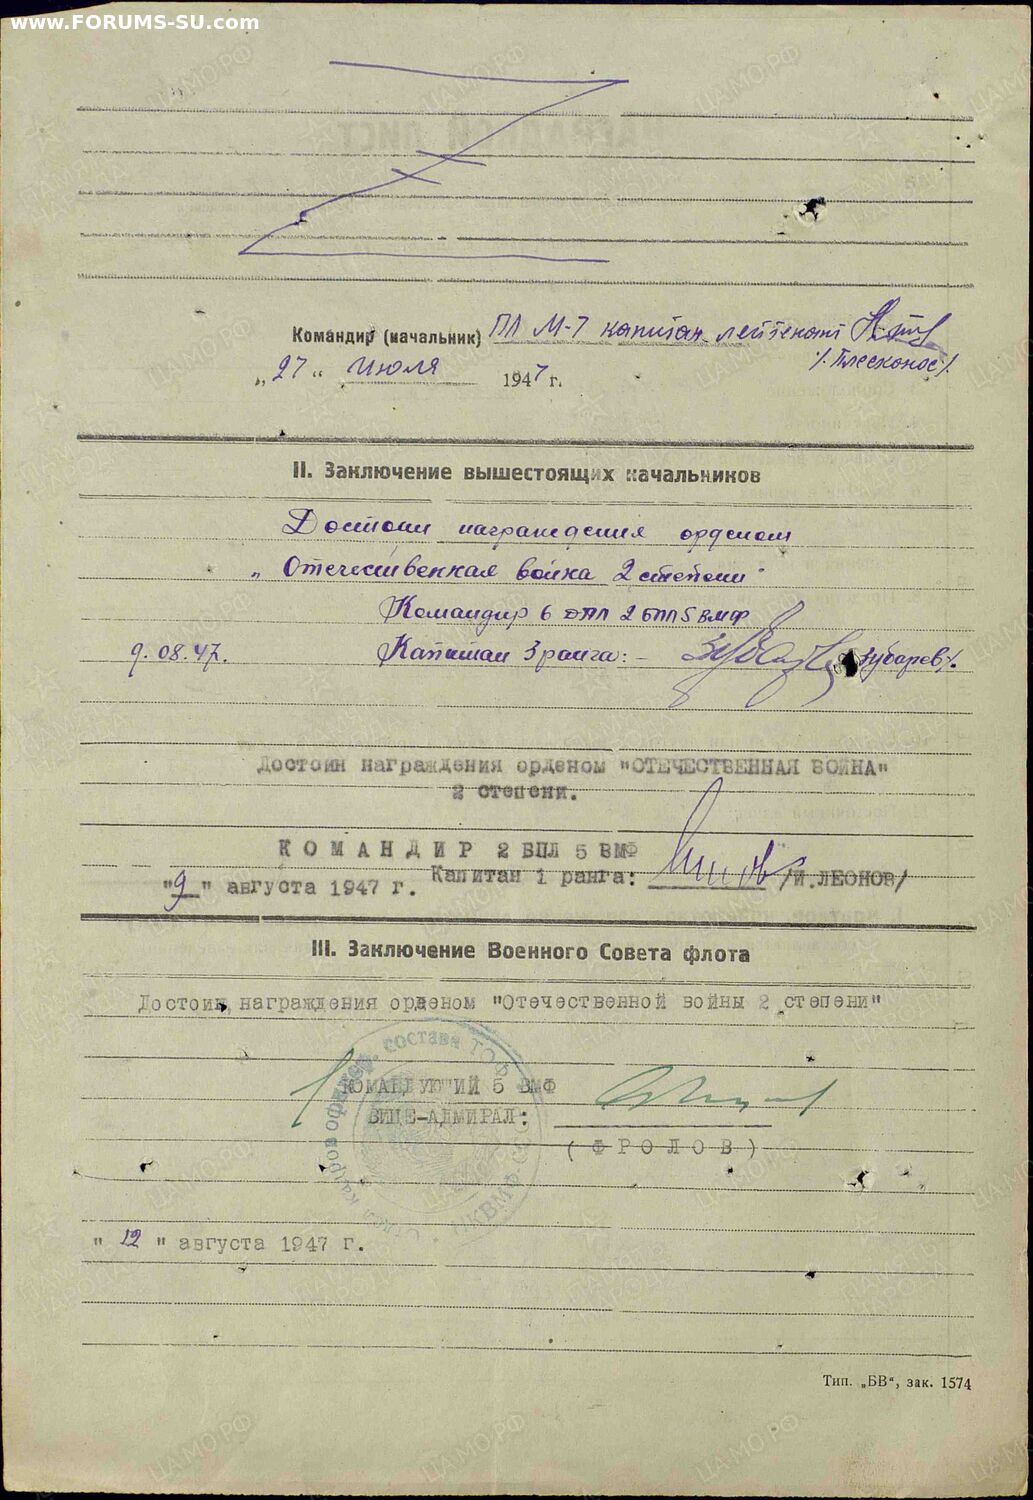 www.FORUMS-SU.com
Командир (начальник) ПЛ М-7 капитан-лейтенант
/Плесконос/.
„27“ июля 1947 г.
II. Заключение вышестоящих начальников
Достоин награждения орденом
„Отечественная война 2 степени"
Командир 6 ДПЛ 2 БПЛ 5 ВМФ
9.08.47. Капитан 3 ранга: – Зубарев/.
Достоин награждения орденом "ОТЕЧЕСТВЕННАЯ ВОЙНА"
2 степени.
КОМАНДИР 2 БПЛ 5 ВМФ
"9" августа 1947 г. Капитан 1 ранга: /И.ЛЕОНОВ/
III. Заключение Военного Совета флота
Достоин награждения орденом "Отечественной войны 2 степени"
КОМАНДУЮЩИЙ 5 ВМФ
ВИЦЕ-АДМИРАЛ:
(ФРОЛОВ)
"12" августа 1947 г.
Тип. „БВ“, зак. 1574